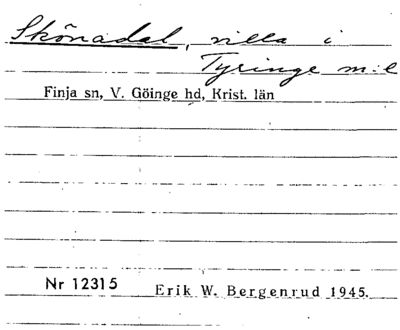 Skönadal, villa i
Tyringe m:e
Finja sn, V. Göinge hd, Krist. län
Nr 12315
Erik W. Bergenrud 1945.